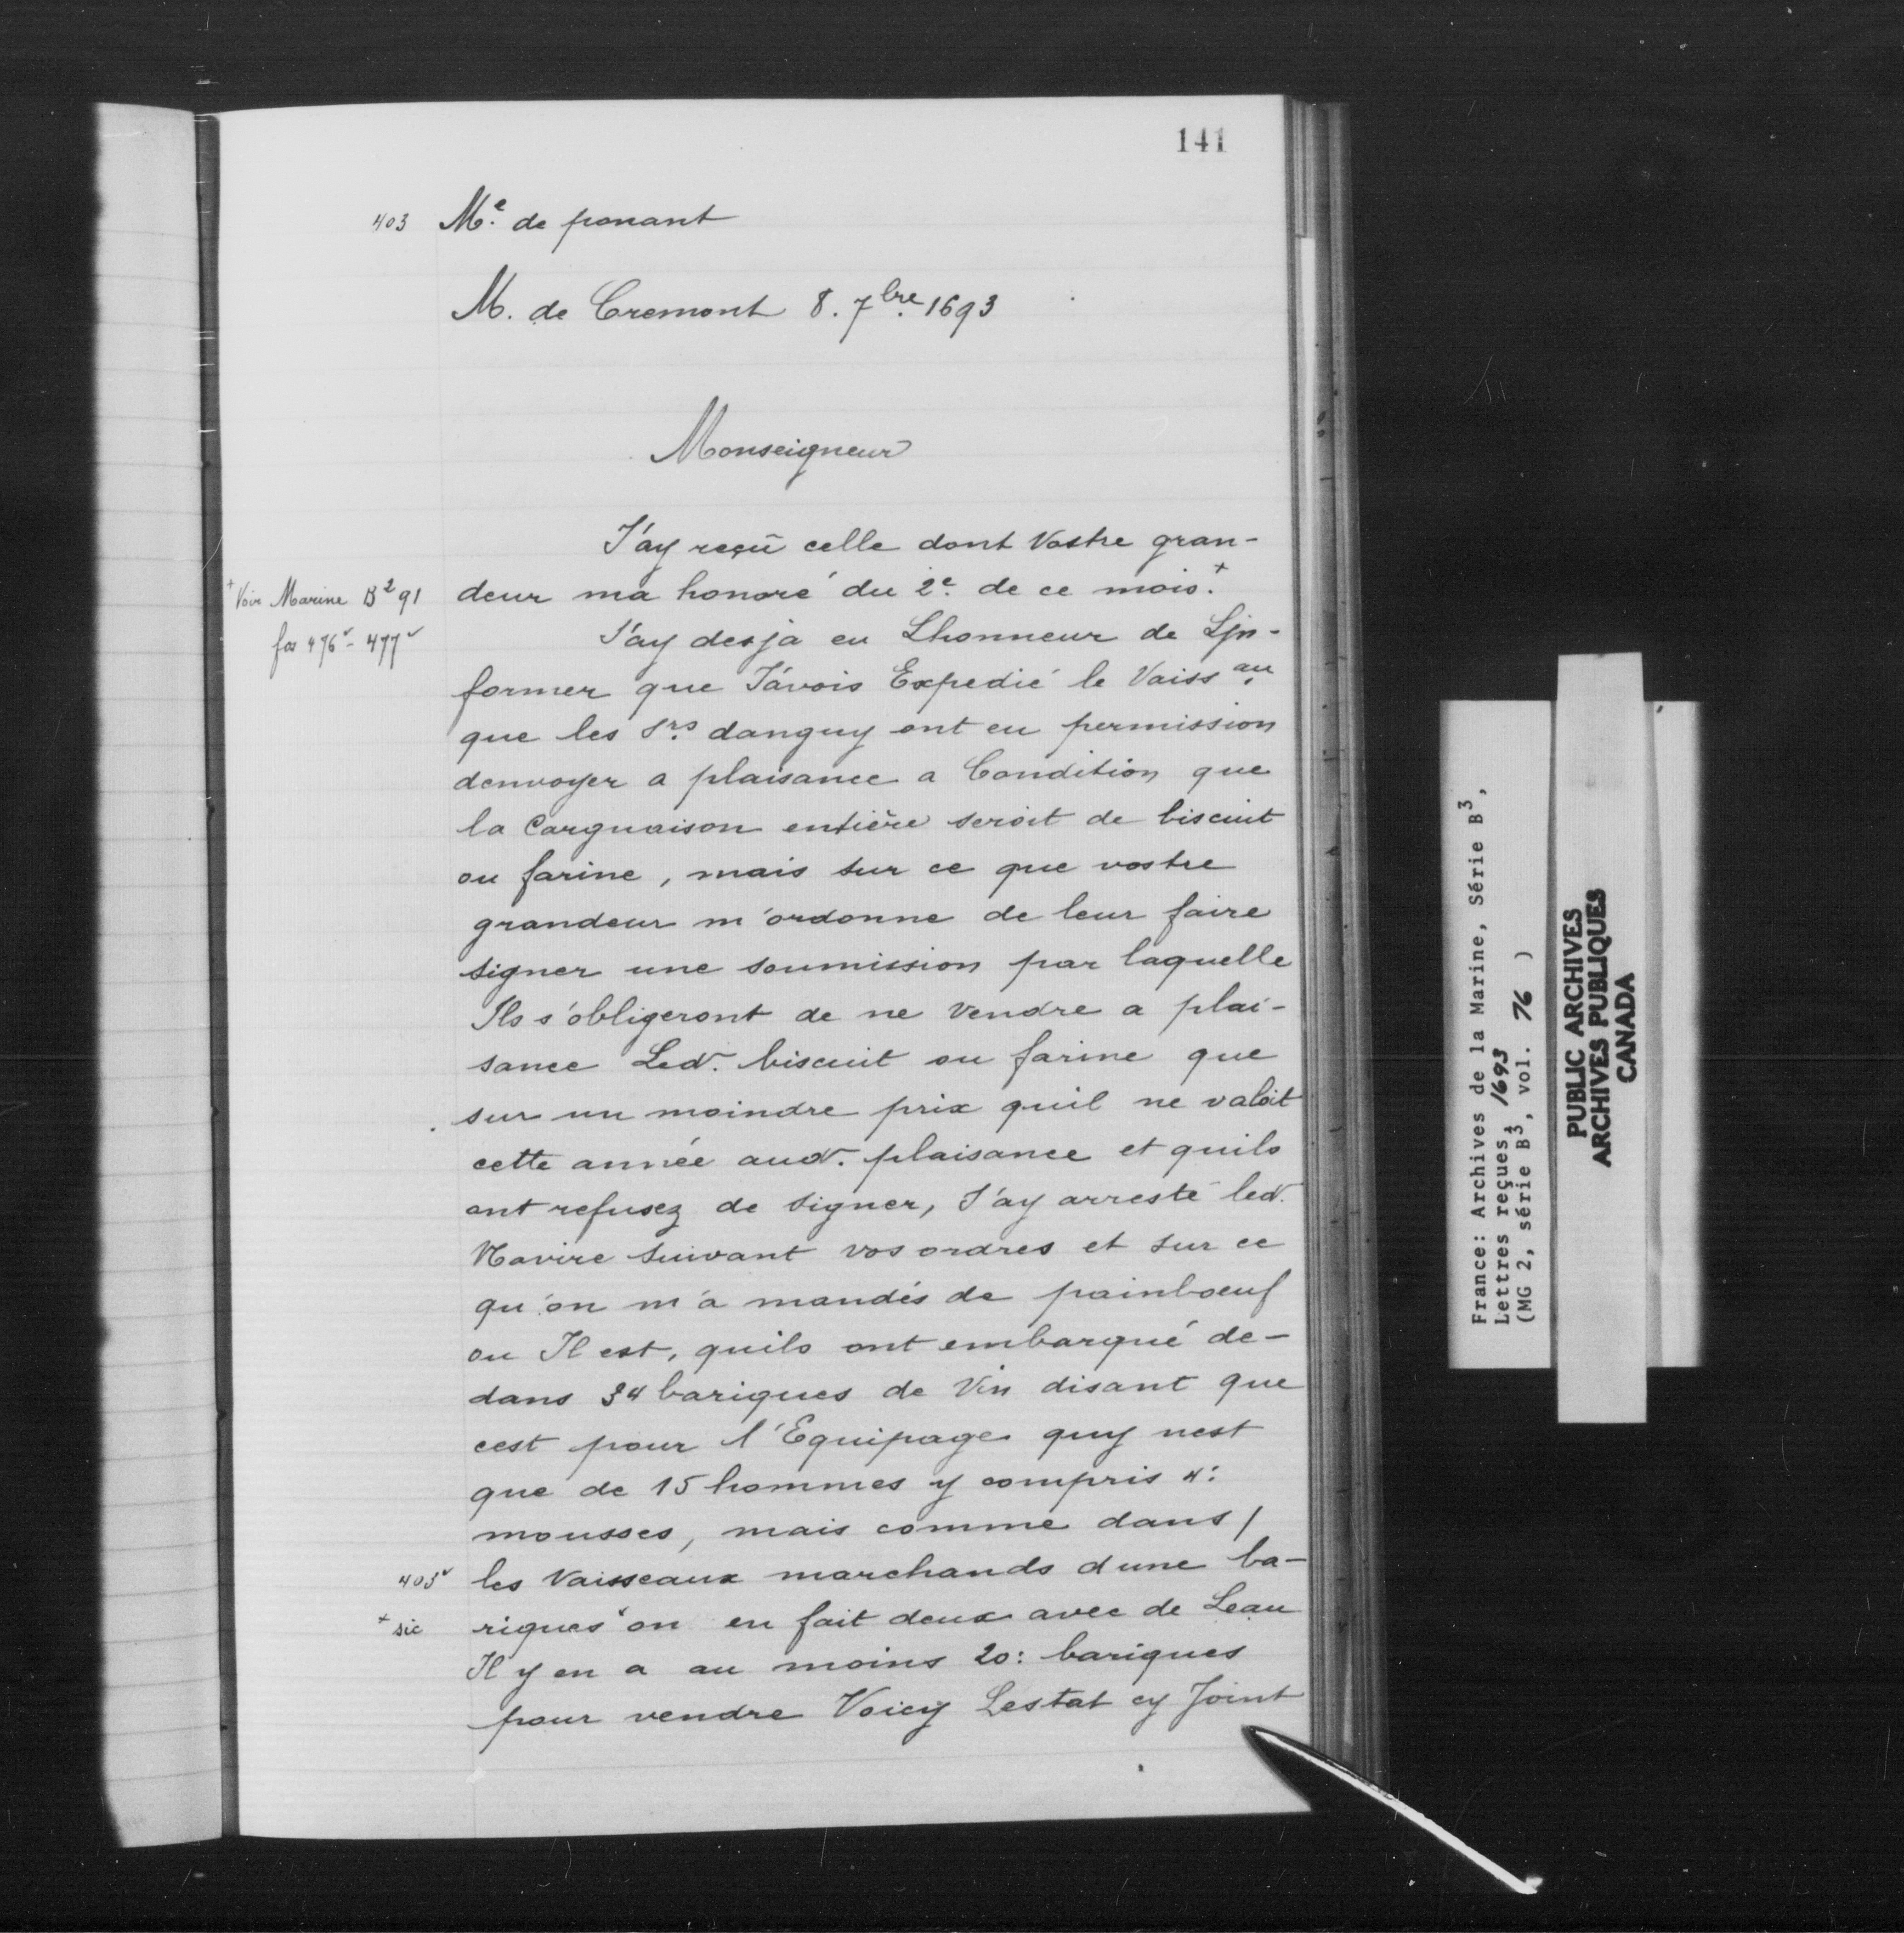 141
403 Mᵉ. de ponant
M. de Cremont 8. 7bre. 1693
Monseigneur
J'ay reçû celle dont Vostre gran-
+ Voir Marine B² 91
fos 476v - 477v
deur ma honoré du 2e. de ce mois.+
J'ay desja eu Lhonneur de Ljn-
former que J'avois Expedié le Vaissau.
que les Srs. danguy ont eu permission
denvoyer a plaisance a Condition que
la Carguaison entière seroit de biscuit
ou farine, mais sur ce que vostre
grandeur m'ordonne de leur faire
signer une soumission par laquelle
Ils s'obligeront de ne vendre a plai-
sance Led. biscuit ou farine que
sur un moindre prix quil ne valoit
cette année aud. plaisance et quils
ont refusez de signer, J'ay arresté led.
Navire suivant vos ordres et sur ce
qu'on m'a mandés de painboeuf
ou Il est, quils ont embarqué de-
dans 34 bariques de Vin disant que
cest pour l'Equipage quy nest
que de 15 hommes y compris 4:
mousses, mais comme dans /
403v les Vaisseaux marchands dune ba-
+ sic riques+ on en fait deux avec de Leau
Il y en a au moins 20: bariques
pour vendre Voicy Lestat cy Joint
France: Archives de la Marine, Série B³,
Lettres reçues, 1693
(MG 2, série B³, vol. 76 )
PUBLIC ARCHIVES
ARCHIVES PUBLIQUES
CANADA